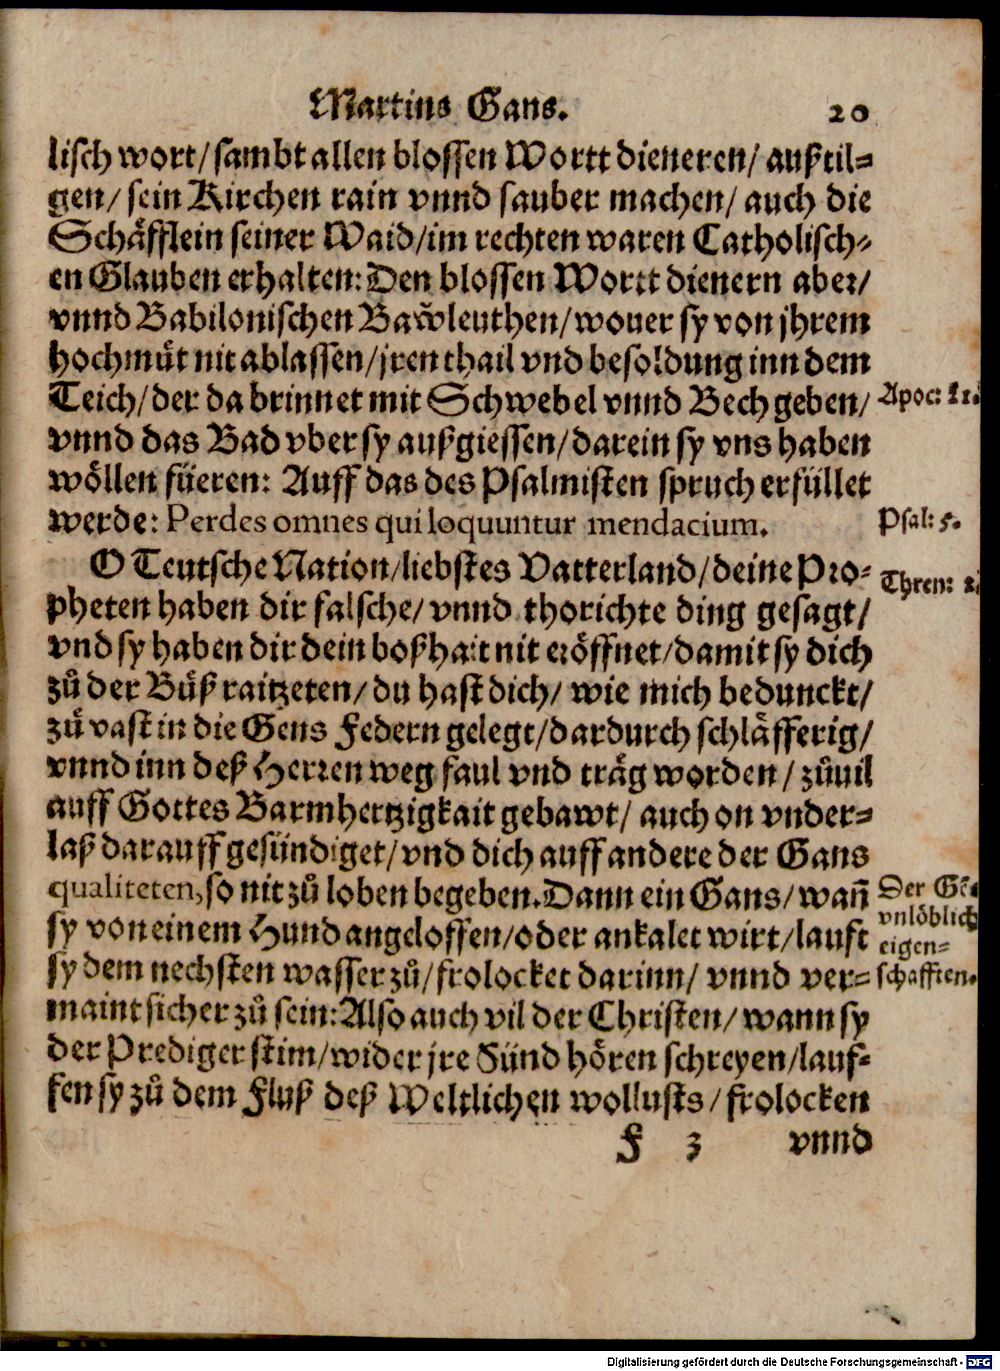 Martins Gans. 20
lisch wort/ sambt allen blossen Wortt dieneren/ außtil⸗
gen/ sein Kirchen rain vnnd sauber machen/ auch die
Schäfflein seiner Waid/ im rechten waren Catholisch⸗
en Glauben erhalten: Den blossen Wortt dienern aber/
vnnd Babilonischen Baẘleuthen/ wouer sy von jhrem
hochmůt nit ablassen/ jren thail vnd besoldung inn dem
Teich/ der da brinnet mit Schwebel vnnd Bech geben/
Apoc:
vnnd das Bad vber sy außgiessen/ darein sy vns haben
wöllen füeren: Auff das des Psalmisten spruch erfüllet
werde: Perdes omnes qui loquuntur mendacium.
Psal: 5.
O Teutsche Nation/ liebstes Vatterland/ deine Pro⸗
Thren:
pheten haben dir falsche/ vnnd thorichte ding gesagt/
vnd sy haben dir dein boßhait nit eröffnet/ damit sy dich
zů der Bůß raitzeten/ du hast dich/ wie mich bedunckt/
zů vast in die Gens Federn gelegt/ dardurch schläfferig/
vnnd inn deß Herren weg faul vnd träg worden/ zůuil
auff Gottes Barmhertzigkait gebawt/ auch on vnder⸗
laß darauff gesündiget/ vnd dich auff andere der Gans
qualiteten, so nit zů loben begeben. Dann ein Gans/ wañ
sy von einem Hund angeloffen/ oder ankalet wirt/ laufft
sy dem nechsten wasser zů/ frolocket darinn/ vnnd ver⸗
Der
vnlöblich
eigen⸗
schafften.
maint sicher zů sein: Also auch vil der Christen/ wann sy
der Prediger stim/ wider jre Sünd hören schreyen/ lauf⸗
fen sy zů dem Fluß deß Weltlichen wollusts/ frolocken
F 3 vnnd
Digitalisierung gefördert durch die Deutsche Forschungsgemeinschaft - DFG